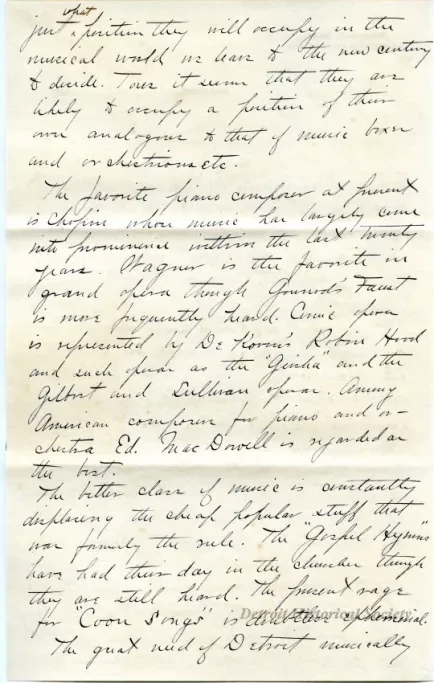 what
just position they will occupy in the
musical world we leave to the new century
to decide. To us it seems that they are
likely to occupy a position of their
own analogous to that of music boxes
and orchestrions etc.
The favorite piano composer at present
is Chopin whose music has largely come
into prominence within the last twenty
years. Wagner is the favorite in
grand opera though Gounod's Faust
is more frequently heard. Comic opera
is represented by De Koven's Robin Hood
and such operas as the "Geisha" and the
Gilbert and Sullivan operas. Among
American composers for piano and or-
chestra Ed. MacDowell is regarded as
the best.
The better class of music is constantly
displacing the cheap popular stuff that
was formerly the rule. The "Gospel Hymns"
have had their day in the churches though
they are still heard. The present rage
for "Coon Songs" is doubtless ephemeral.
The great need of Detroit musically
Detroit Historical Society